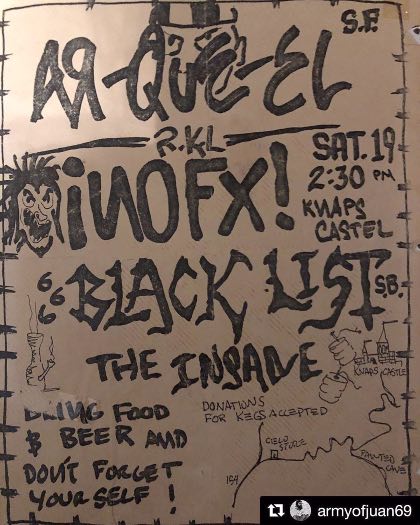 S.F.
AR-QUE-EL
R.KL
SAT. 19
2:30 PM
KNAPS
CASTEL
iNOFX!
666
BLACK LIST S.B.
THE INSANE
KNAPS CASTLE
BRING FOOD
$ BEER AND
DON'T FORGET
YOUR SELF!
DONATIONS
FOR KEGS ACCEPTED
CIELO
STORE
PAINTED
CAVE
154
armyofjuan69